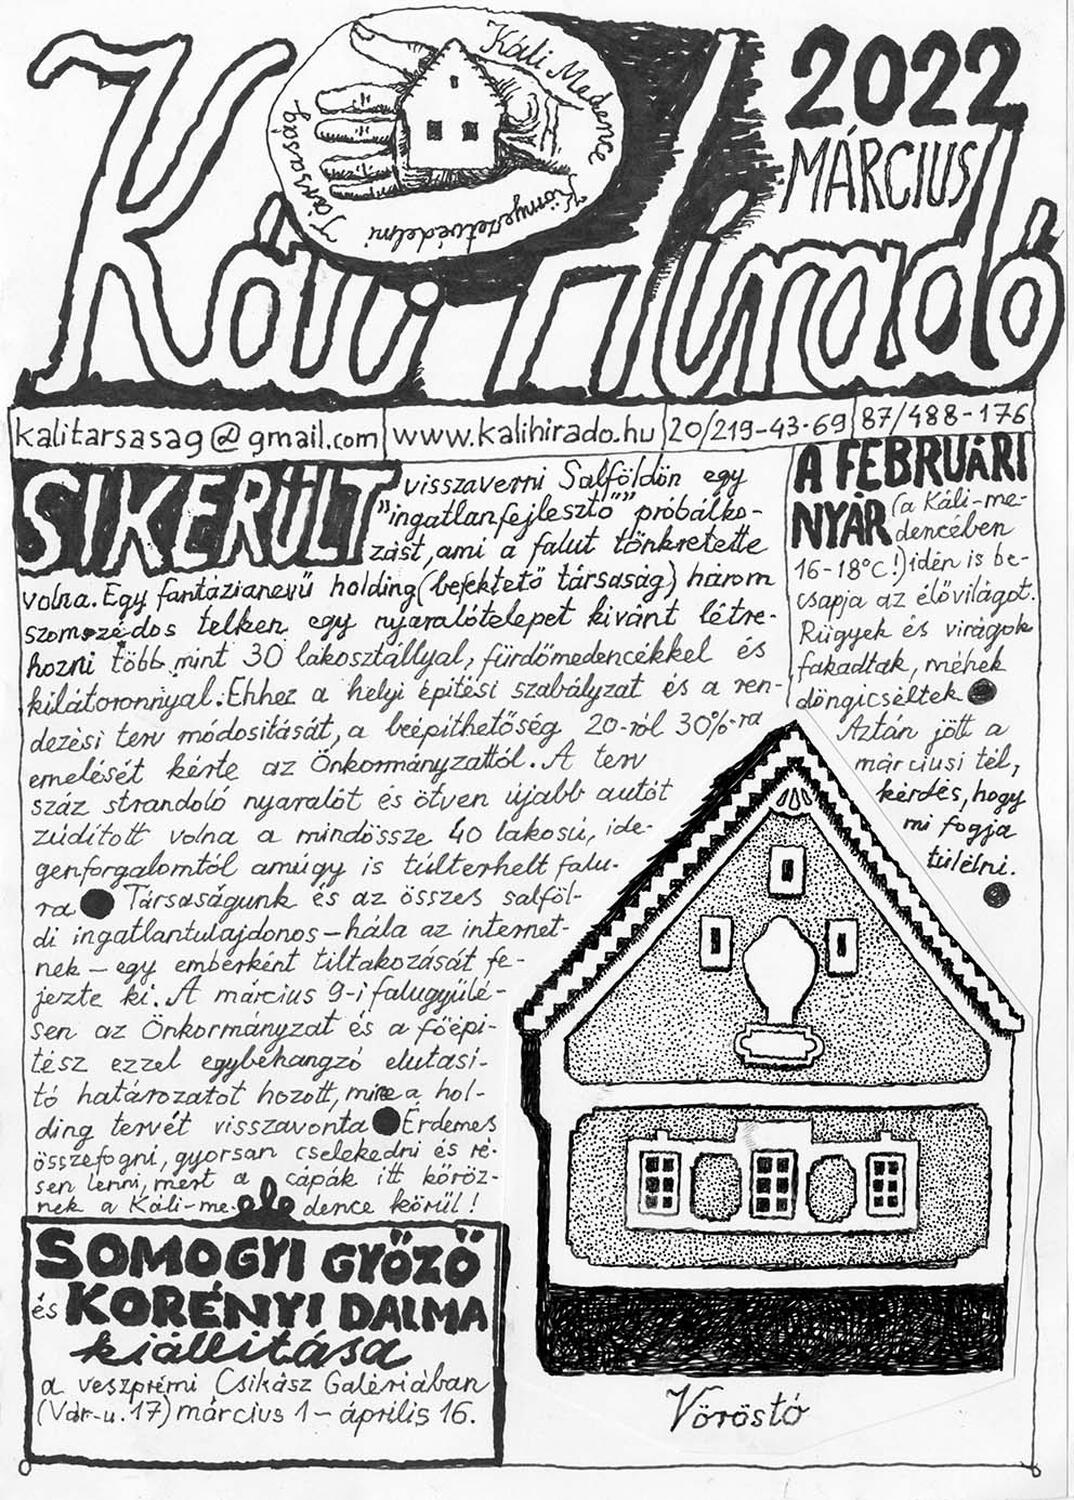 Káli Medence
Környezetvédelmi
Társaság
2022
MÁRCIUS
Káli Hiradó
kalitarsasag@gmail.com
www.kalihirado.hu
20/219-43-69
87/488-176
SIKERÜLT visszaverni Salföldön egy
"ingatlanfejlesztő" próbálko-
zást, ami a falut tönkretette
volna. Egy fantázianevű holding (befektető társaság) három
szomszédos telken egy nyaralótelepet kivánt létre-
hozni több mint 30 lakosztállyal, fürdőmedencékkel és
kilátoronnyal. Ehhez a helyi épitési szabályzat és a ren-
dezési terv módositását, a beépithetőség 20-ról 30%-ra
emelését kérte az Önkormányzattól. A terv
száz strandoló nyaralót és ötven újabb autót
zúditott volna a mindössze 40 lakosú, ide-
genforgalomtól amúgy is túlterhelt falu-
ra ● Társaságunk és az összes salföl-
di ingatlantulajdonos – hála az internet-
nek – egy emberként tiltakozását fe-
jezte ki. A március 9-i falugyülé-
sen az Önkormányzat és a főépi-
tész ezzel egybehangzó elutasi-
tó határozatot hozott, mire a hol-
ding tervét visszavonta ● Érdemes
összefogni, gyorsan cselekedni és ré-
sen lenni, mert a cápák itt köröz-
nek a Káli-me- dence körül!
A FEBRUÁRI
NYÁR (a Káli-me-
dencében
16-18°C!) idén is be-
csapja az élővilágot.
Rügyek és virágok
fakadtak, méhek
döngicséltek ●
Aztán jött a
márciusi tél,
kérdés, hogy
mi fogja
túlélni.
●
SOMOGYI GYŐZŐ
és KORÉNYI DALMA
kiállitása
a veszprémi Csikász Galériában
(Vár-u. 17) március 1 – április 16.
Vöröstó